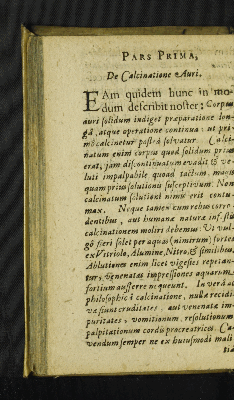 PARS PRIMA,
De Calcinatione Auri.
EAm quidem hunc in mo-
dum describit noster; Corpus
auri solidum indiget præparatione lon-
gâ, atque operatione continuâ: ut pri-
mò calcinetur postea solvatur. Calci-
natum enim corpus quod solidum prius
erat, jam discontinuatum evadit & ve-
luti impalpabile, quoad tactum, magis
quam prius solutionis susceptivum: Non
calcinatum solutioni nimis erit contu-
max. Neque tamen cum rebus corro-
dentibus, aut humanæ naturæ infestis
calcinationem moliri debemus: Ut vul-
gò fieri solet per aquas (nimirum) fortes
ex Vitriolo, Alumine, Nitro, & similibus.
Ablutiones enim licet vigesies repetan-
tur, venenatas impressiones aquarum
fortium aufferre nequeunt. In verâ at
philosophicâ calcinatione, nullæ recidi-
væ fiunt cruditates, aut venenatæ im-
puritates, vomitionum, resolutionum
palpitationum cordis procreatrices. Ca-
vendum semper ne ex huiusmodi mali